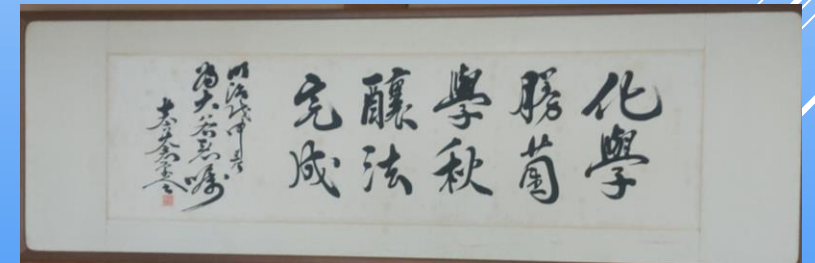 化學
勝菌
學秋
釀法
完成
明治戊申春
為大谷君嘱